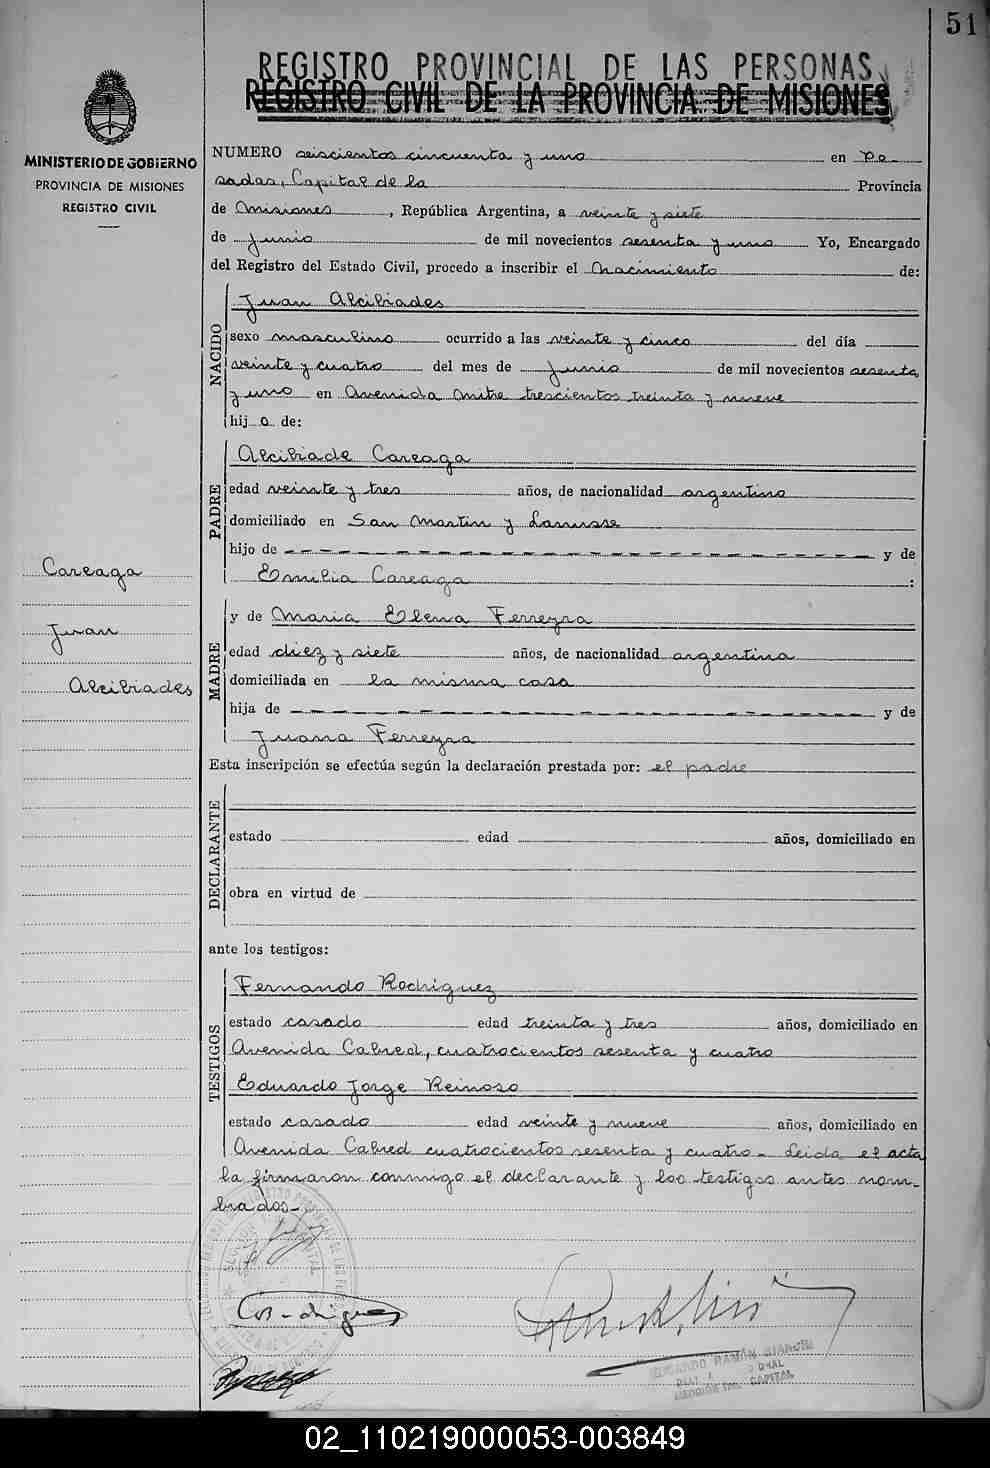 51
REGISTRO PROVINCIAL DE LAS PERSONAS
REGISTRO CIVIL DE LA PROVINCIA DE MISIONES
MINISTERIO DE GOBIERNO
PROVINCIA DE MISIONES
REGISTRO CIVIL
NUMERO seiscientos cincuenta y uno en Po-
sadas, Capital de la Provincia
de Misiones, República Argentina, a veinte y siete
de Junio de mil novecientos sesenta y uno Yo, Encargado
del Registro del Estado Civil, procedo a inscribir el Nacimiento de:
NACIDO
Juan Alcibiades
sexo masculino ocurrido a las veinte y cinco del día
veinte y cuatro del mes de Junio de mil novecientos sesenta
y uno en Avenida Mitre trescientos treinta y nueve
hijo de:
PADRE
Alcibiade Careaga
edad veinte y tres años, de nacionalidad argentino
domiciliado en San Martin y Lanusse
hijo de - - - - - - - - - - - - - - - - - - - - y de
Emilia Careaga :
Careaga
Juan
Alcibiades
MADRE
y de Maria Elena Ferreyra
edad diez y siete años, de nacionalidad argentina
domiciliada en la misma casa
hija de - - - - - - - - - - - - - - - - - - - - y de
Juana Ferreyra
Esta inscripción se efectúa según la declaración prestada por: el padre
DECLARANTE
estado edad años, domiciliado en
obra en virtud de
ante los testigos:
TESTIGOS
Fernando Rodriguez
estado casado edad treinta y tres años, domiciliado en
Avenida Cabred, cuatrocientos sesenta y cuatro
Eduardo Jorge Reinoso
estado casado edad veinte y nueve años, domiciliado en
Avenida Cabred cuatrocientos sesenta y cuatro - Leida el acta
la firmaron conmigo el declarante y los testigos antes nom-
brados-
RAMÓN BIANCHI
CAPITAL
02_110219000053-003849